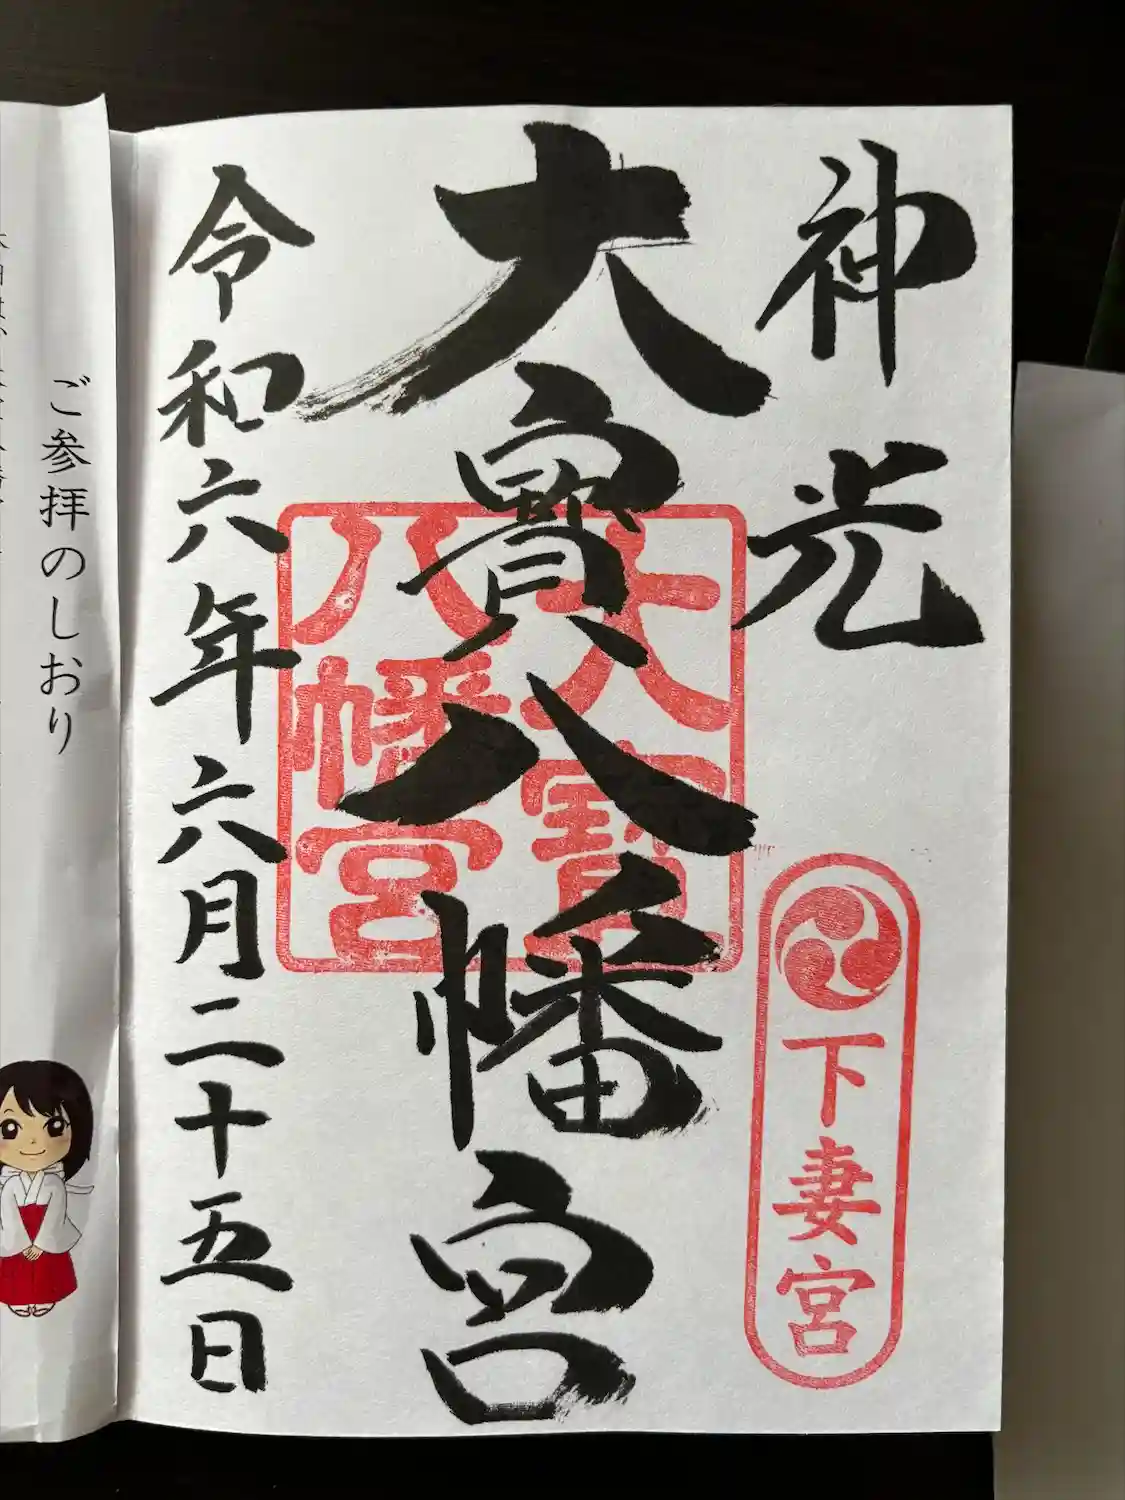 神光
大寶八幡宮
大寶
八幡宮
下妻宮
令和六年六月二十五日
ご参拝のしおり